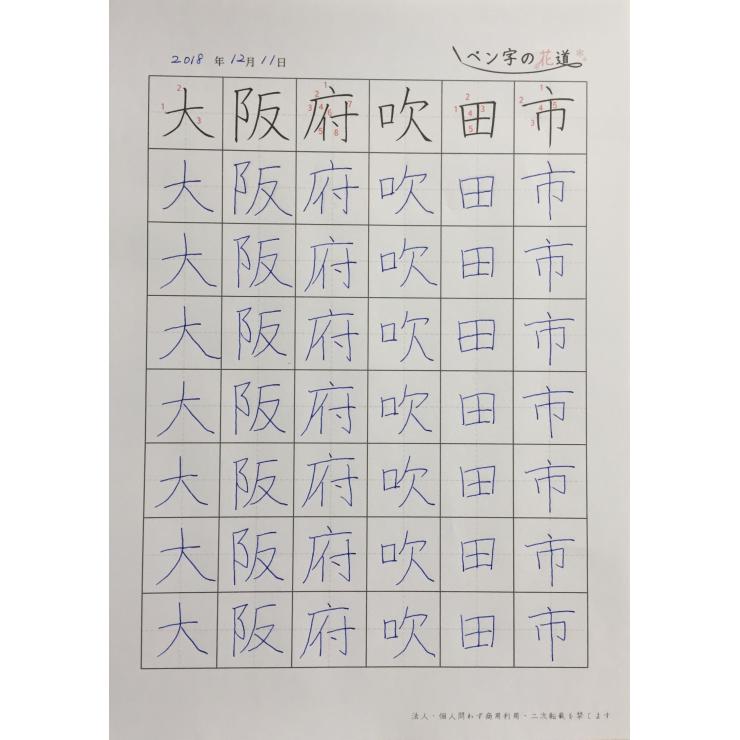 2018 年 12月 11日
ペン字の花道
1 2 3 1 2 3 4 6 7 5 8 2 1 4 3 5 1 2 4 5 3
大 阪 府 吹 田 市
大 阪 府 吹 田 市
大 阪 府 吹 田 市
大 阪 府 吹 田 市
大 阪 府 吹 田 市
大 阪 府 吹 田 市
大 阪 府 吹 田 市
大 阪 府 吹 田 市
法人・個人問わず商用利用・二次転載を禁じます